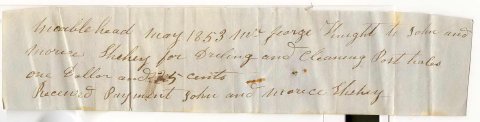 Marblehead May 1853 Mr. George Knight to John and
Morice Shehey for Dreling and Cleaning Post holes
one Dollar and cents
Received Payment John and Morice Shehey